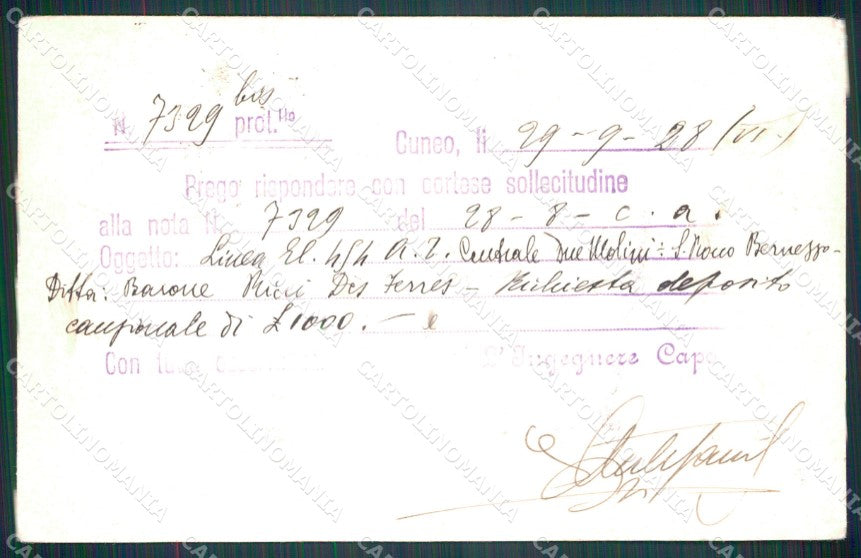 N. 7329 bis prot.llo
Cuneo, li 29-9-28 (VI.)
Prego rispondere con cortese sollecitudine
alla nota N. 7329 del 28-8-c.a.
Oggetto: Linea El. A.T. Centrale Due Molini = S. Rocco Bernezzo -
Ditta: Barone Ricci Des Ferres - Richiesta deposito
cauzionale di £ 1000. -
Con L'Ingegnere Capo
CARTOLINOMANIA